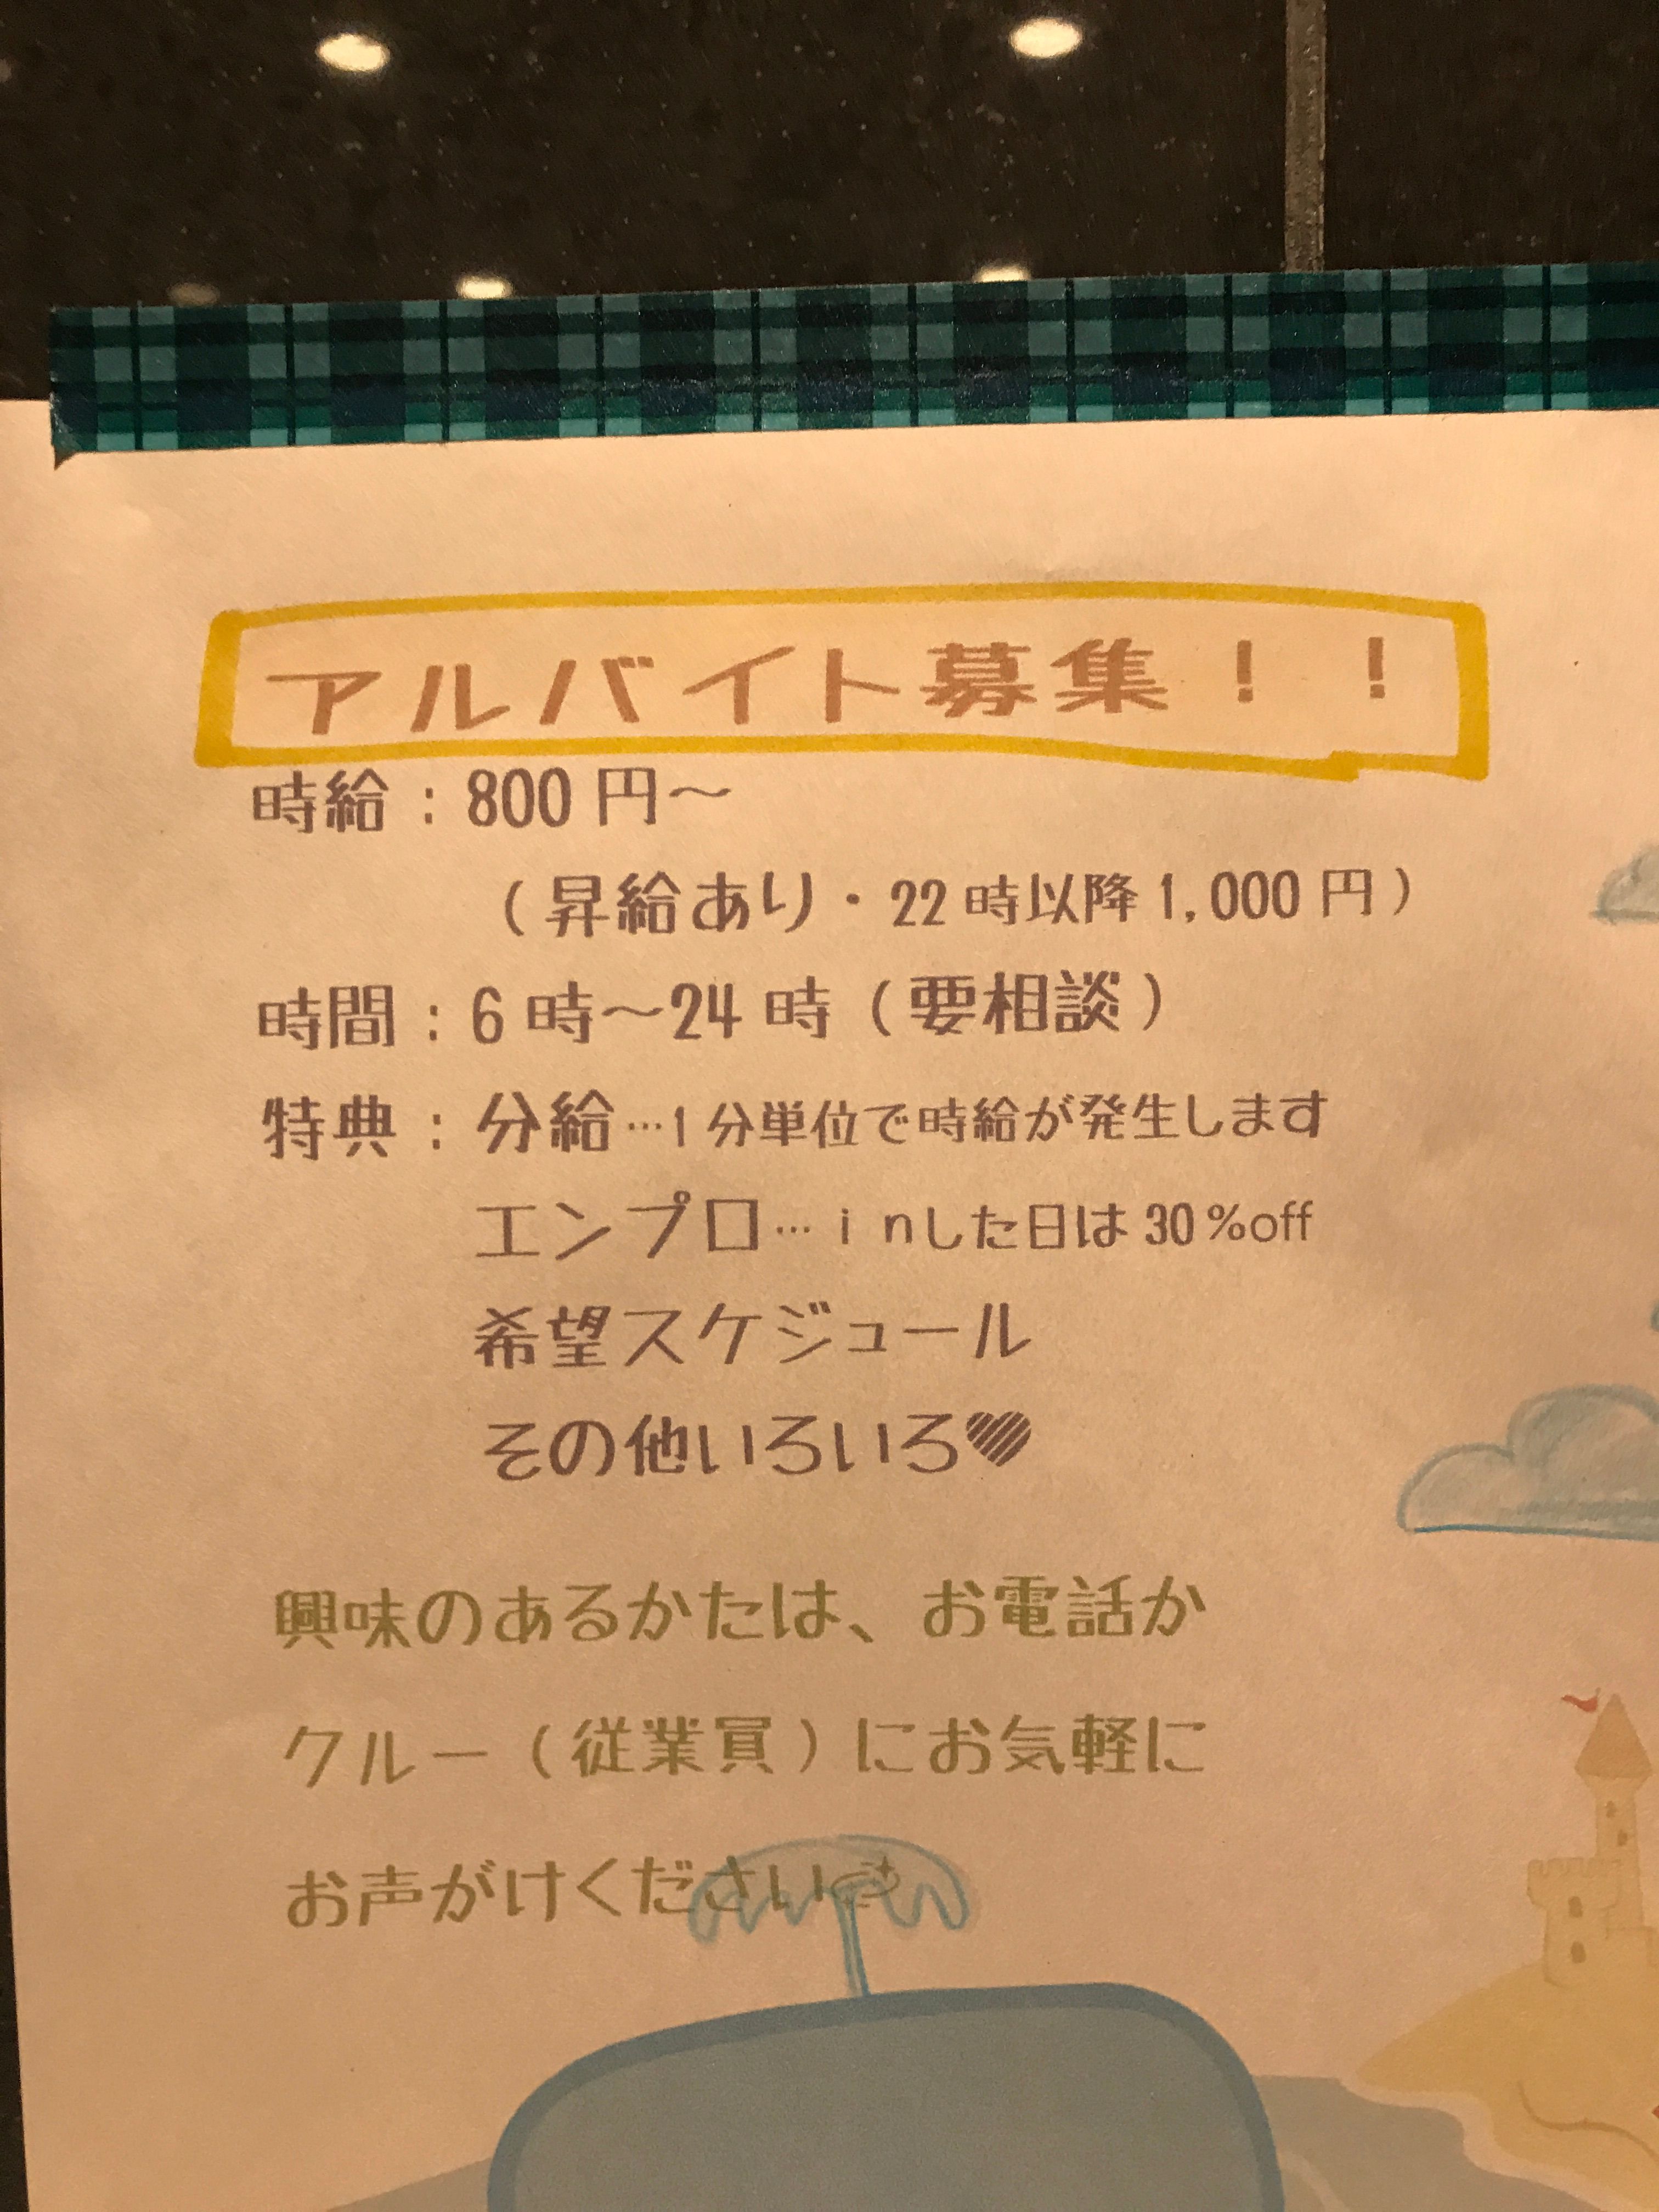 アルバイト募集！！
時給：800円～
（昇給あり・22時以降1,000円）
時間：6時～24時（要相談）
特典：分給…1分単位で時給が発生します
エンプロ…ｉｎした日は30％off
希望スケジュール
その他いろいろ♥
興味のあるかたは、お電話か
クルー（従業員）にお気軽に
お声がけください